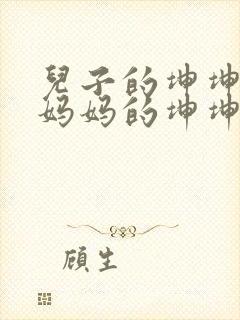 兒子的坤坤
妈妈的坤坤
顾生